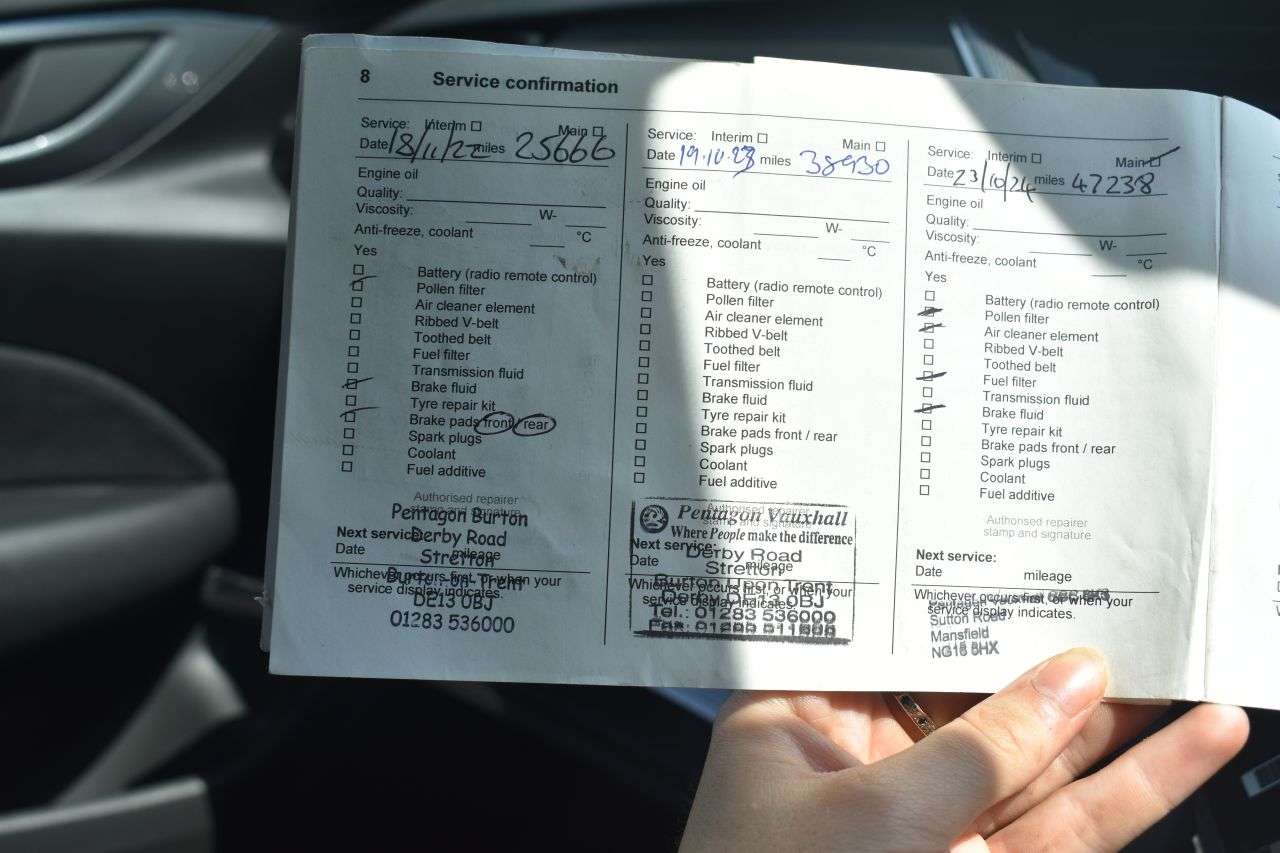 8 Service confirmation
Service: Interim Main
Date 18/11/22 miles 25666
Engine oil
Quality:
Viscosity: W-
Anti-freeze, coolant °C
Yes
Battery (radio remote control)
Pollen filter
Air cleaner element
Ribbed V-belt
Toothed belt
Fuel filter
Transmission fluid
Brake fluid
Tyre repair kit
Brake pads front / rear
Spark plugs
Coolant
Fuel additive
Authorised repairer
stamp and signature
Pentagon Burton
Derby Road
Stretton
Burton-on-Trent
DE13 0BJ
01283 536000
Next service:
Date mileage
Whichever occurs first, or when your
service display indicates.
Service: Interim Main
Date 19.10.23 miles 38930
Engine oil
Quality:
Viscosity: W-
Anti-freeze, coolant °C
Yes
Battery (radio remote control)
Pollen filter
Air cleaner element
Ribbed V-belt
Toothed belt
Fuel filter
Transmission fluid
Brake fluid
Tyre repair kit
Brake pads front / rear
Spark plugs
Coolant
Fuel additive
Authorised repairer
stamp and signature
Pentagon Vauxhall
Where People make the difference
Derby Road
Stretton
Burton Upon Trent
Derby DE13 0BJ
Tel.: 01283 536000
Fax:
Next service:
Date mileage
Whichever occurs first, or when your
service display indicates.
Service: Interim Main
Date 23/10/24 miles 47238
Engine oil
Quality:
Viscosity: W-
Anti-freeze, coolant °C
Yes
Battery (radio remote control)
Pollen filter
Air cleaner element
Ribbed V-belt
Toothed belt
Fuel filter
Transmission fluid
Brake fluid
Tyre repair kit
Brake pads front / rear
Spark plugs
Coolant
Fuel additive
Authorised repairer
stamp and signature
Next service:
Date mileage
Whichever occurs first, or when your
service display indicates.
Sutton Road
Mansfield